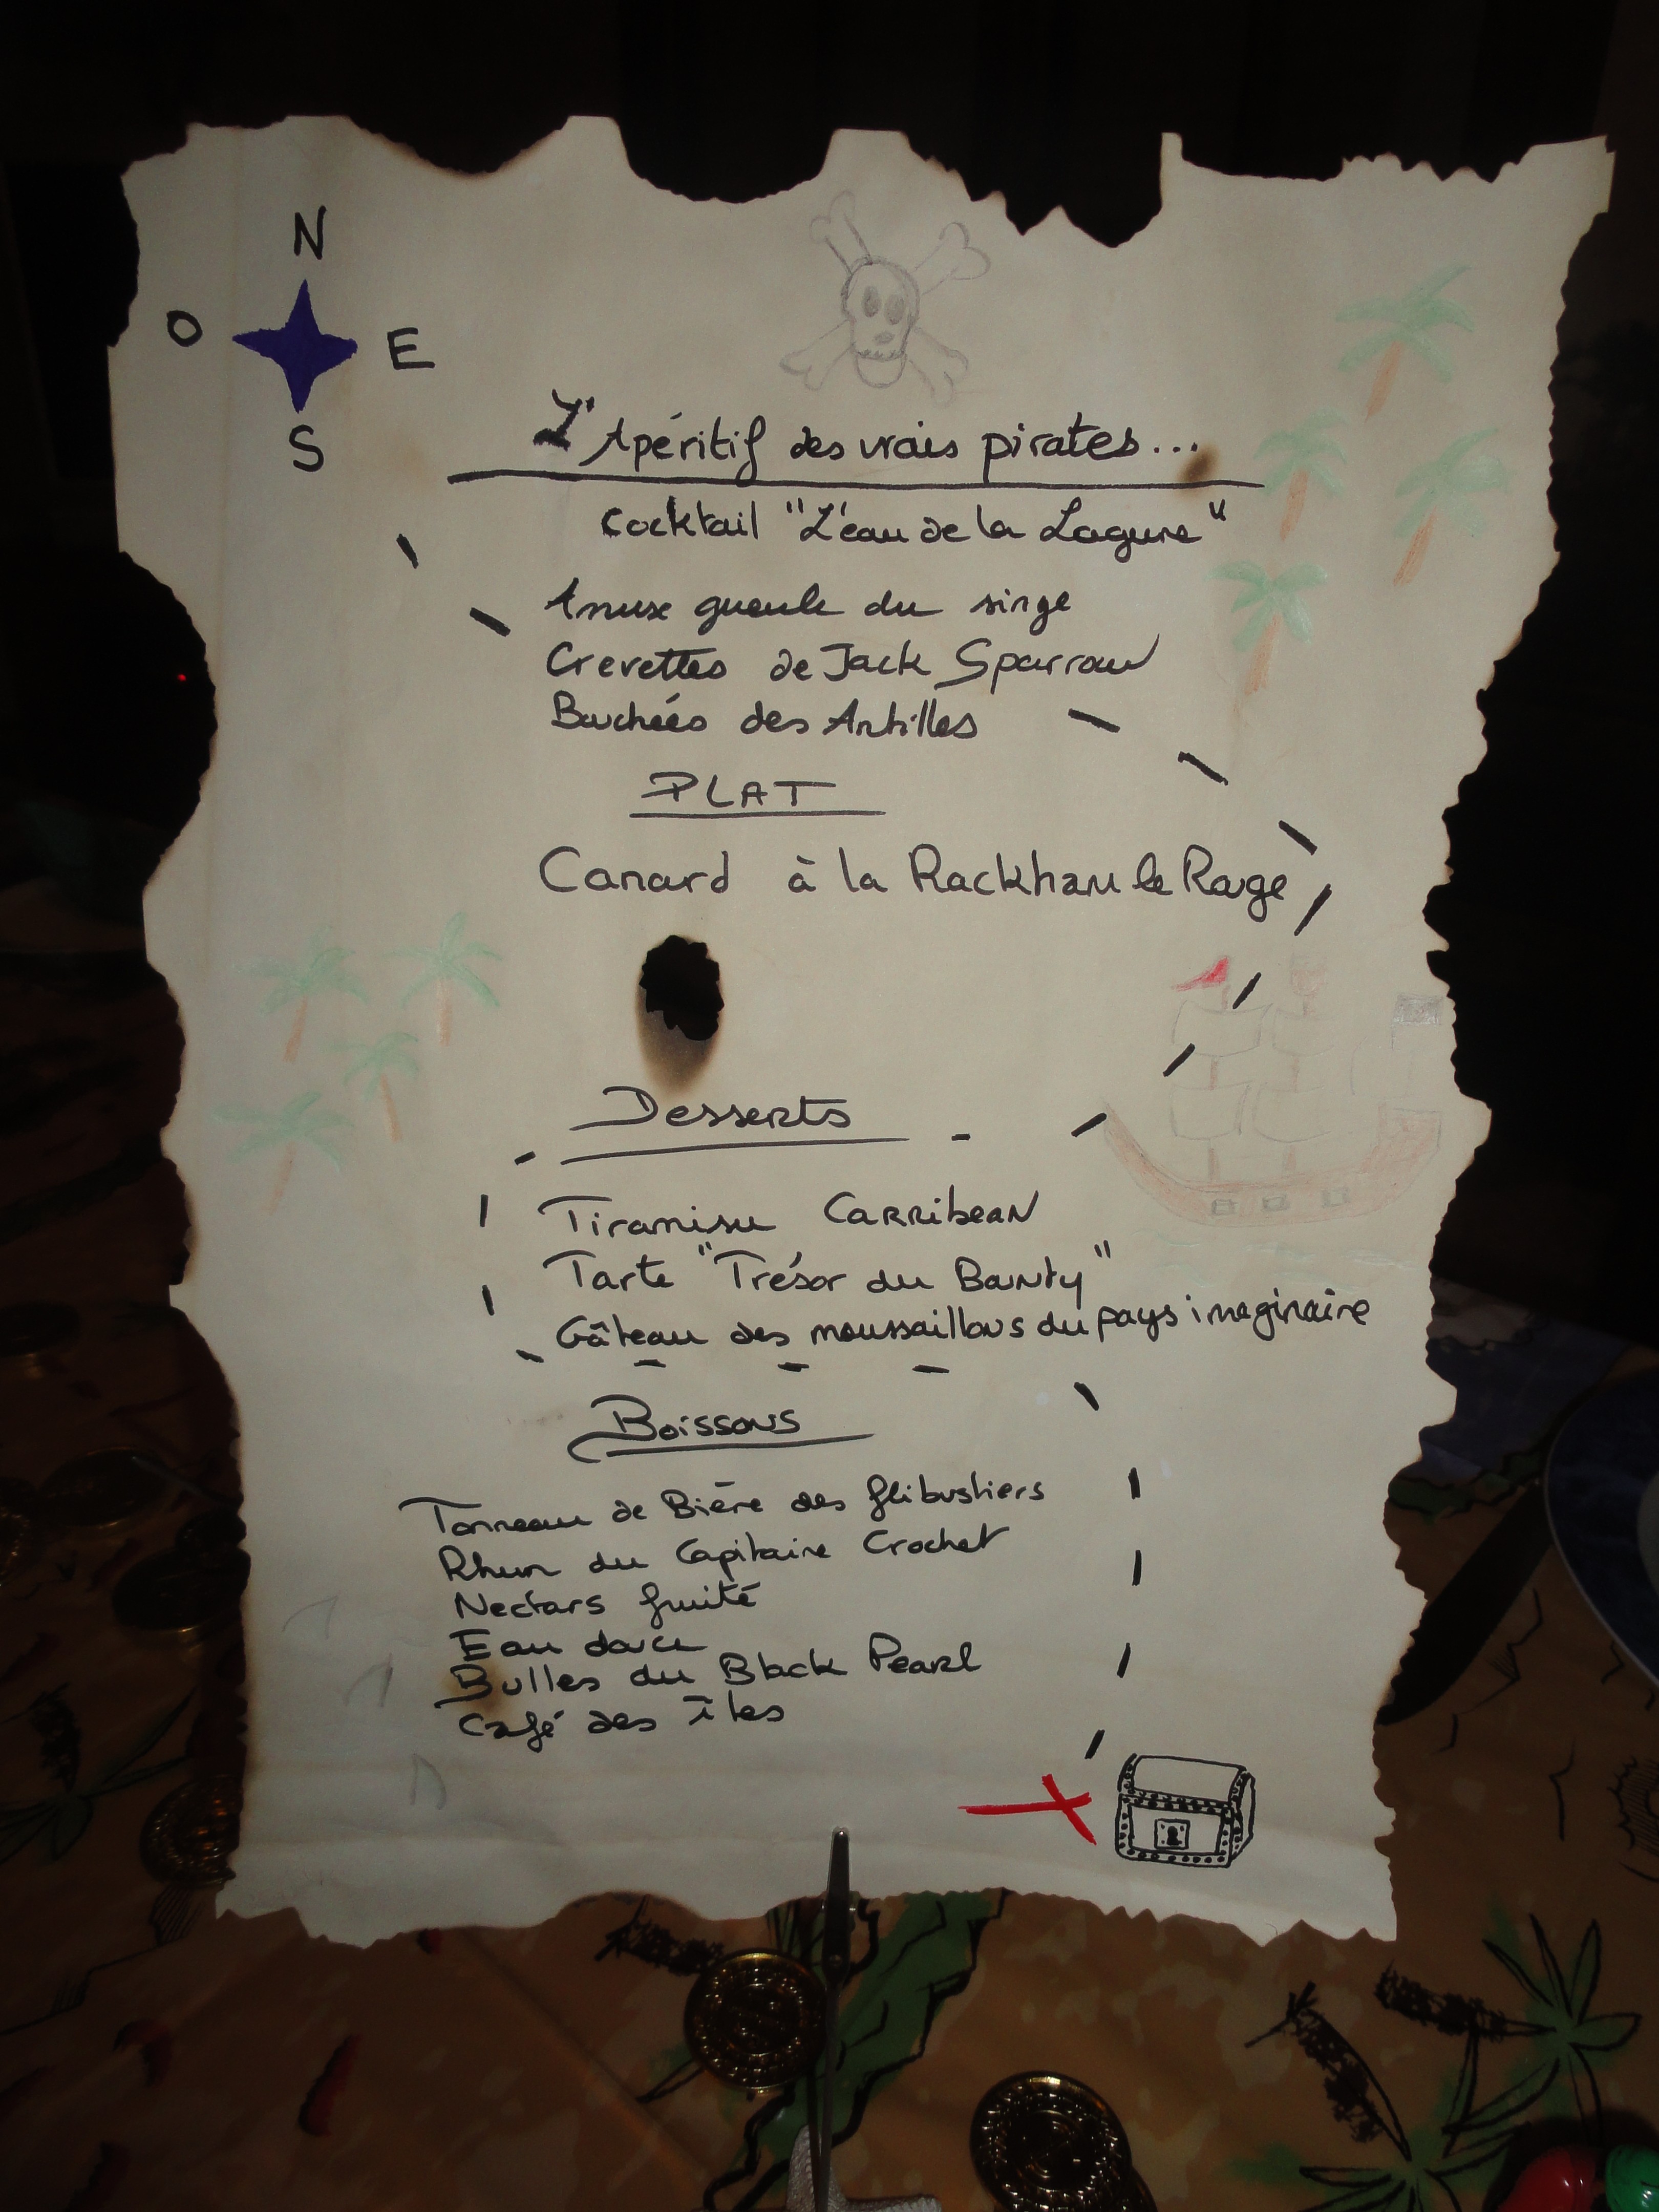 N
O E
S
L'Apéritif des vrais pirates...
Cocktail "L'eau de la Lagune"
Amuse gueule du singe
Crevettes de Jack Sparrow
Bouchées des Antilles
PLAT
Canard à la Rackham le Rouge
Desserts
Tiramisu Carribean
Tarte "Trésor du Bounty"
Gâteau des moussaillons du pays imaginaire
Boissons
Tonneau de Bière des flibustiers
Rhum du Capitaine Crochet
Nectars fruité
Eau douce
Bulles du Black Pearl
Café des îles